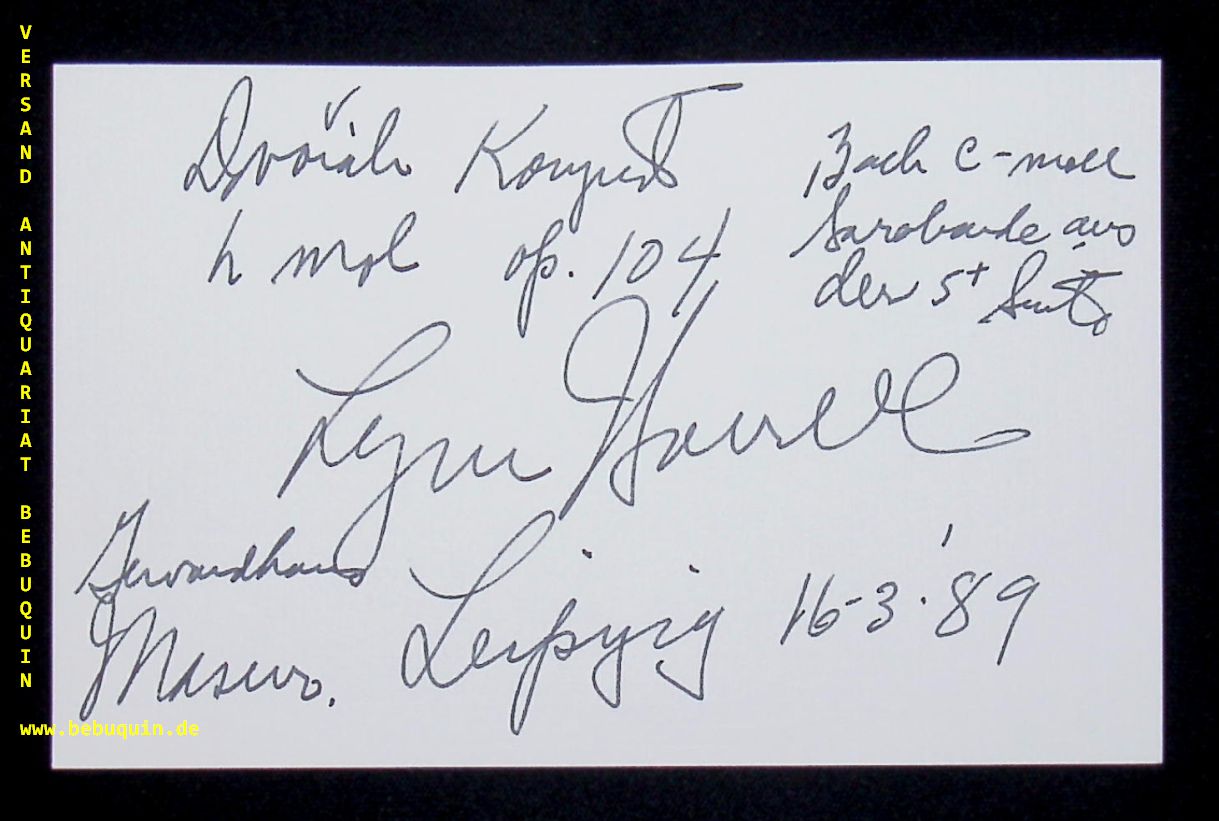 VERSAND ANTIQUARIAT BEBUQUIN
Dvořák Konzert
h mol op. 104
Bach c-moll
Sarabande aus
der 5t Suite
Lynn Harrell
Gewandhaus
Masur.
Leipzig 16-3.'89
www.bebuquin.de